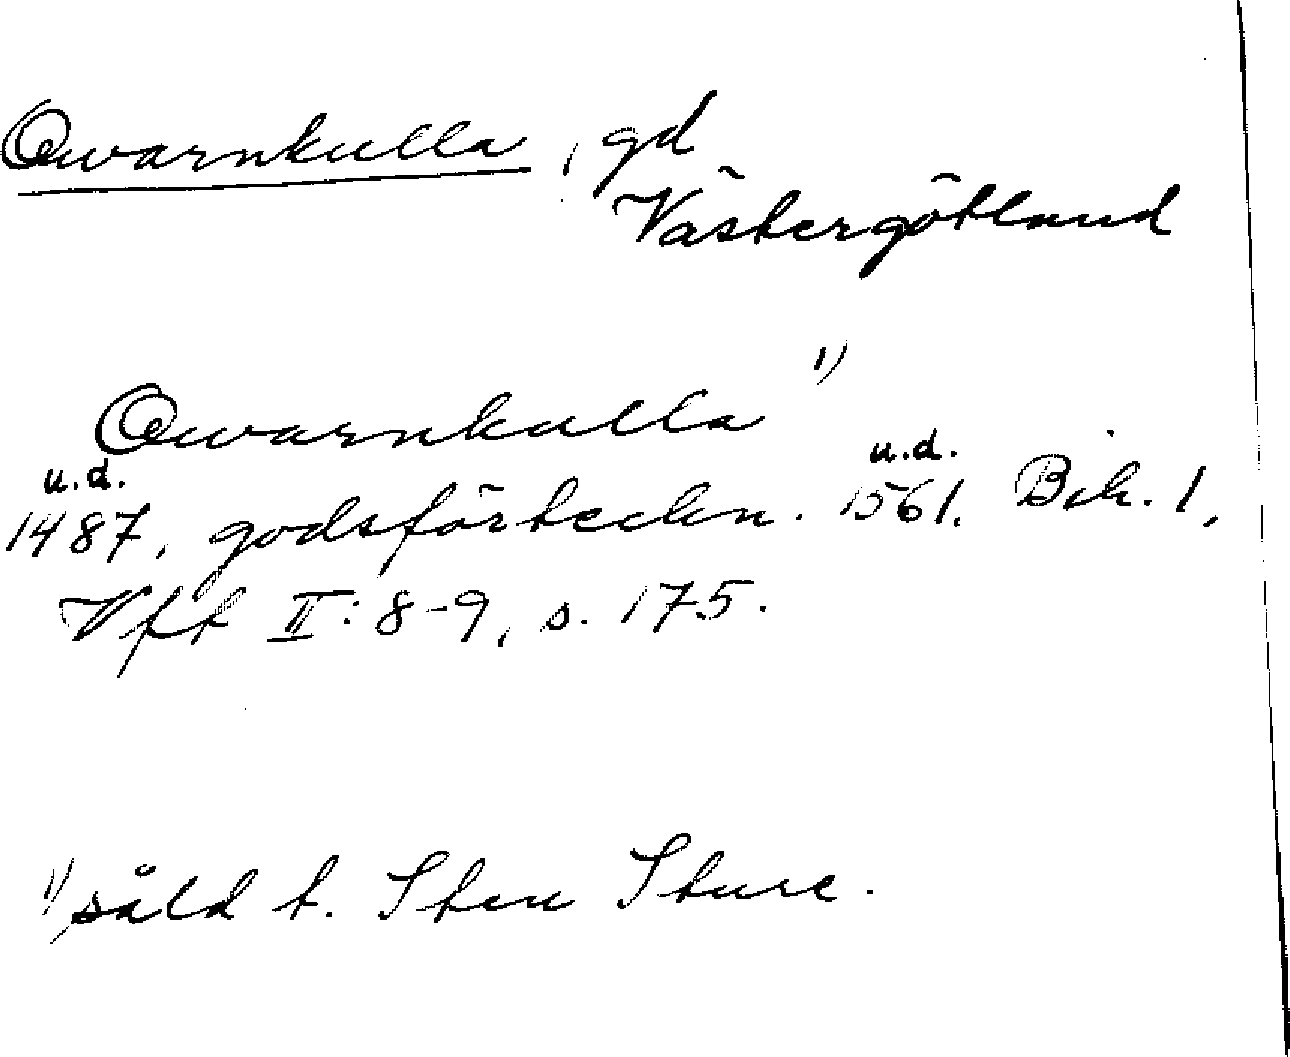 Qwarnkulla, gd
Västergötland
Qwarnkulla 1)
u.d. u.d.
1487, godsförteckn. 1561. Bih. 1,
Vft II: 8-9, s. 175.
1) såld t. Sten Sture.